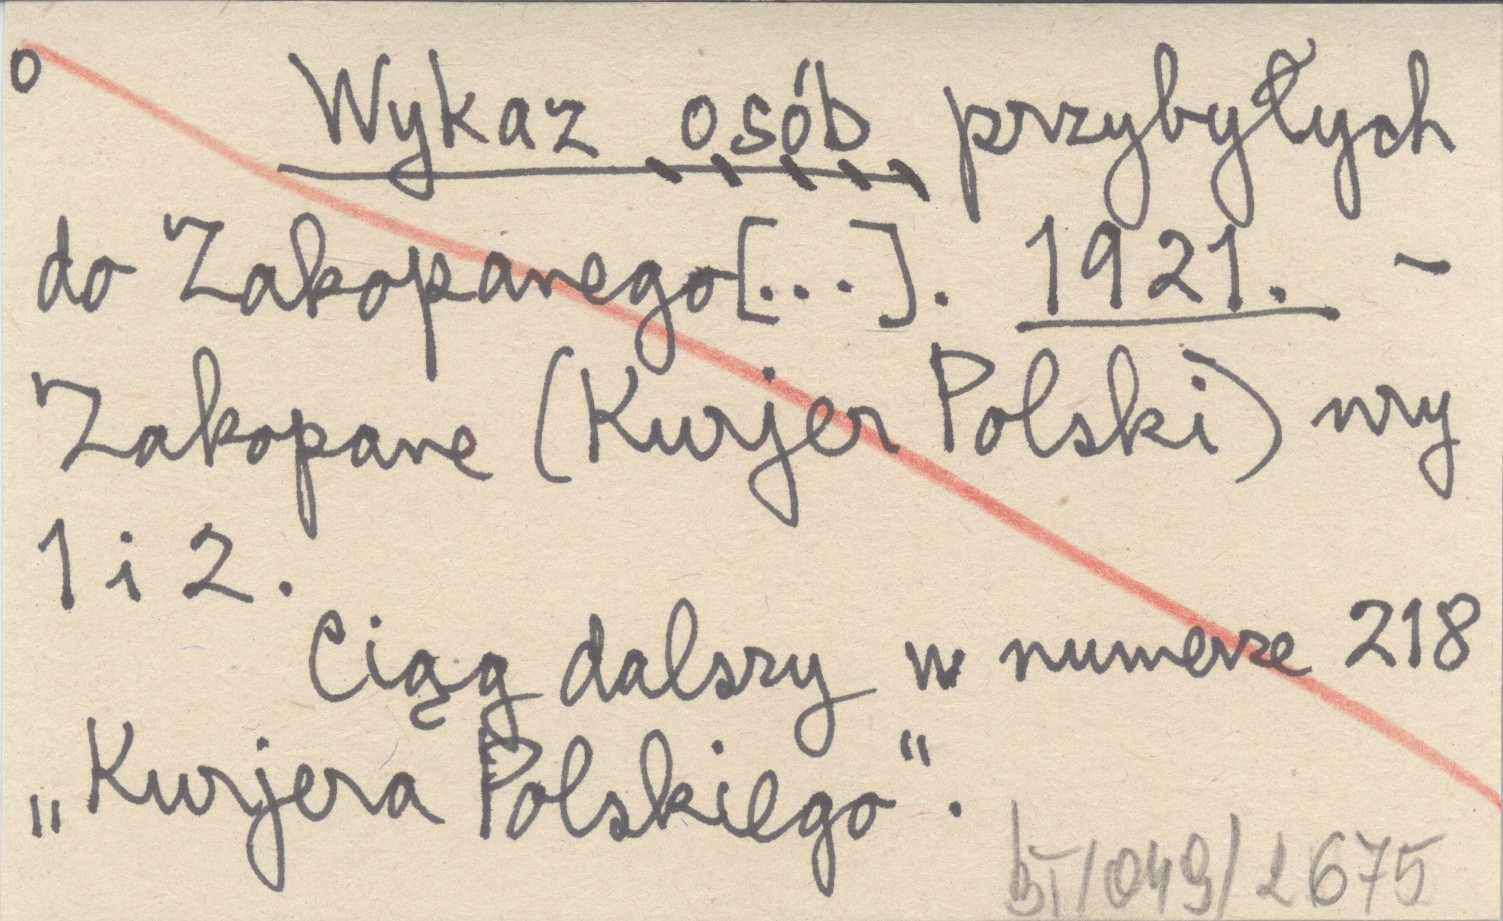 o Wykaz osób przybyłych
do Zakopanego [...]. 1921. -
Zakopane (Kurjer Polski) nry
1 i 2.
Ciąg dalszy w numerze 218
„Kurjera Polskiego".
bI/049/2675